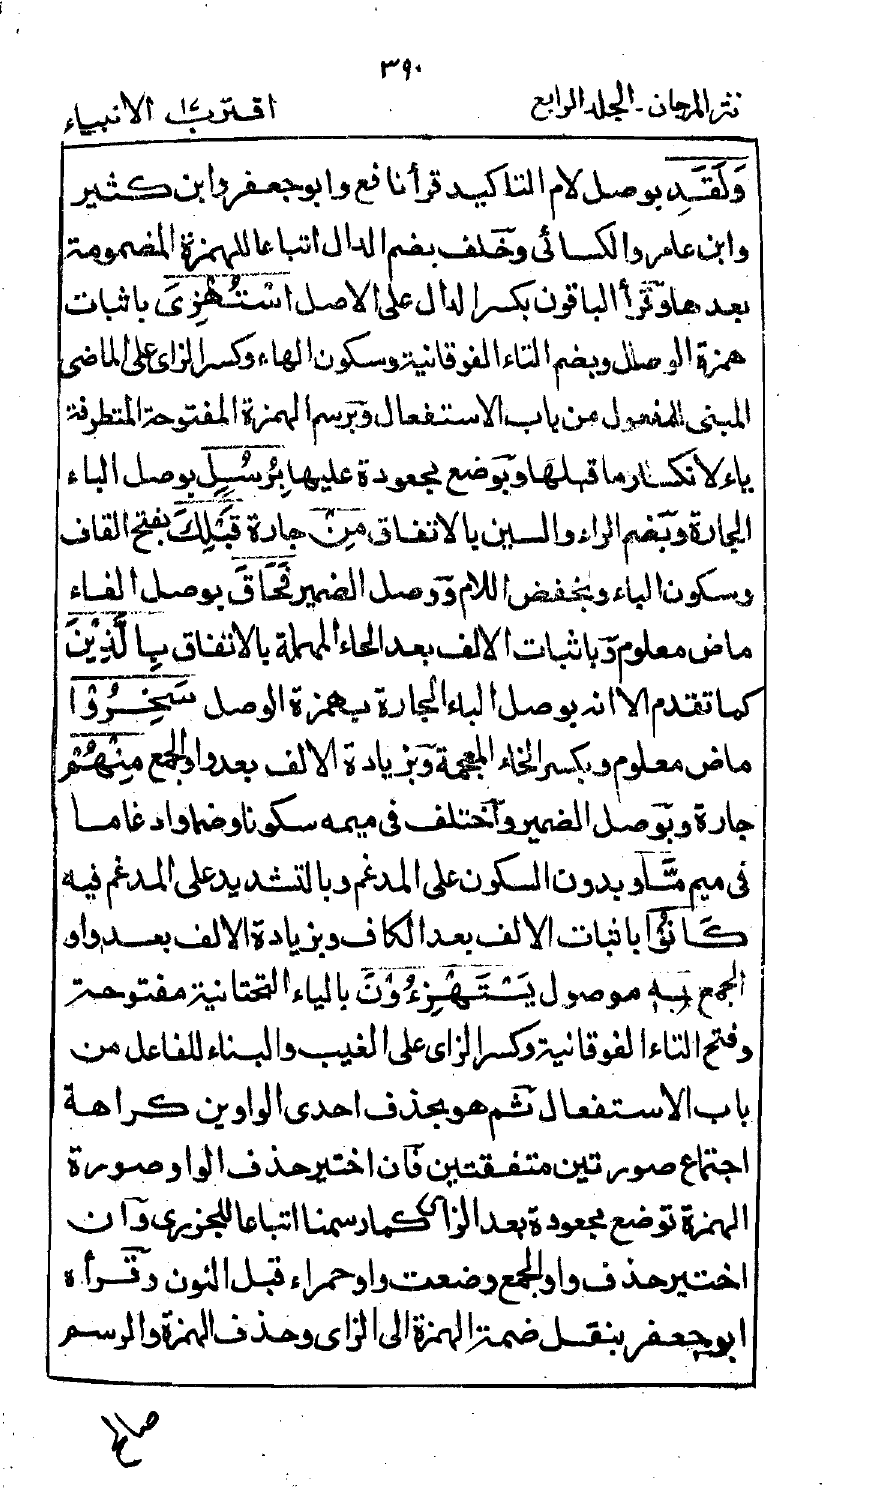 ٣٩٠
نثر المرجان - الجلد الرابع
اقترب ١٧ الانبياء
وَلَقَدِ بوصل لام التاكيد قرأ نافع وابوجعفر وابن كثير
وابن عامر والكسائى وخلف بضم الدال اتباعا للهمزة المضمومة
بعدها وقرأ الباقون بكسر الدال على الاصل اسْتُهْزِىَ باثبات
همزة الوصل وبضم التاء الفوقانية وسكون الهاء وكسر الزاى على الماضى
المبنى للمفعول من باب الاستفعال وبرسم الهمزة المفتوحة المتطرفة
ياء لانكسار ما قبلها وبوضع مجعودة عليها بِرُسُلٍ بوصل الباء
الجارة وبضم الراء والسين بالاتفاق مِنْ جارة قَبْلِكَ بفتح القاف
وسكون الباء وبخفض اللام ووصل الضمير فَحَاقَ بوصل الفاء
ماض معلوم وباثبات الالف بعد الحاء المهملة بالاتفاق بِالَّذِيْنَ
كما تقدم الا انه بوصل الباء الجارة بهمزة الوصل سَخِرُوْا
ماض معلوم وبكسر الخاء المعجمة وبزيادة الالف بعد واو الجمع مِنْهُمْ
جارة وبوصل الضمير واختلف فى ميمه سكونا وضما وادغاما
فى ميم مَّا وبدون السكون على المدغم وبالتشديد على المدغم فيه
كَانُوْا باثبات الالف بعد الكاف وبزيادة الالف بعد واو
الجمع بِهٖ موصول يَسْتَهْزِءُوْنَ بالياء التحتانية مفتوحة
وفتح التاء الفوقانية وكسر الزاى على الغيب والبناء للفاعل من
باب الاستفعال ثم هو بحذف احدى الواوين كراهة
اجتماع صورتين متفقتين فان اختير حذف الواو صورة
الهمزة توضع مجعودة بعد الزاى كما رسمنا اتباعا للجزرى وان
اختير حذف واو الجمع وضعت واو حمراء قبل النون وقرأه
ابوجعفر بنقل ضمة الهمزة الى الزاى وحذف الهمزة والرسم
صالح